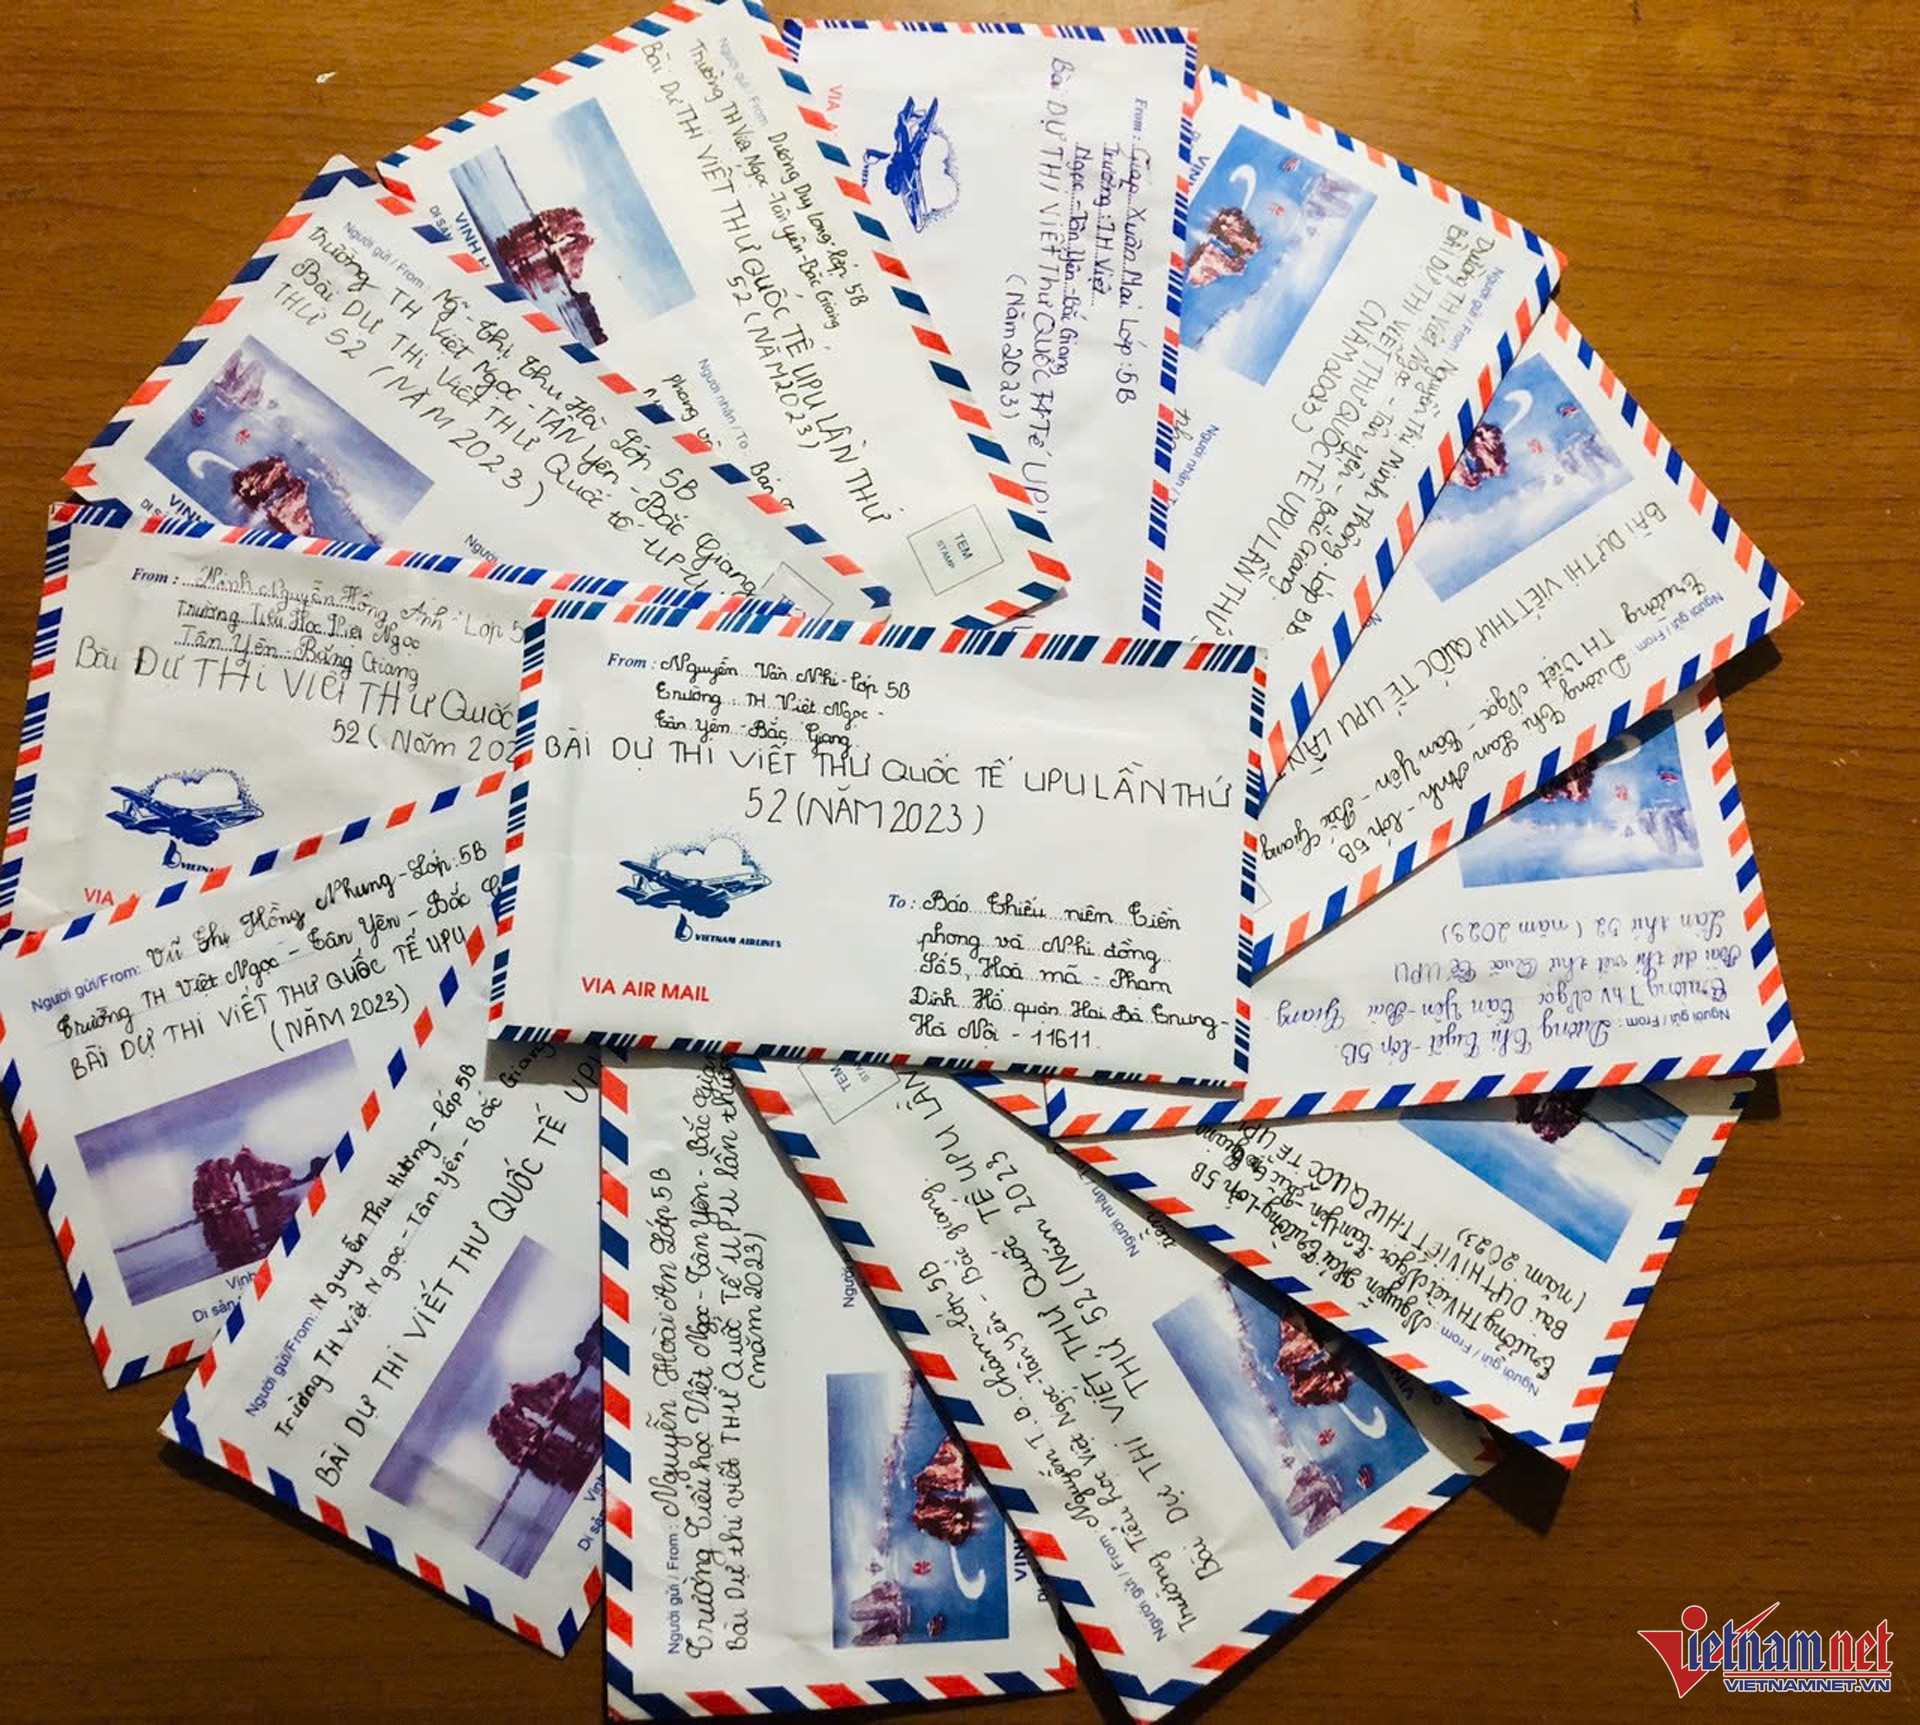 From : Nguyễn Vân Nhi - lớp 5B
Trường TH Việt Ngọc -
Tân Yên - Bắc Giang
BÀI DỰ THI VIẾT THƯ QUỐC TẾ UPU LẦN THỨ
52 (NĂM 2023)
VIETNAM AIRLINES
VIA AIR MAIL
To : Báo Thiếu niên Tiền
phong và Nhi đồng
Số 5, Hoà mã - Phạm
Đình Hổ quận Hai Bà Trưng -
Hà Nội - 11611.
Người gửi / From
Dương Duy Long - lớp 5B
Trường TH Việt Ngọc - Tân Yên - Bắc Giang
BÀI DỰ THI VIẾT THƯ QUỐC TẾ UPU LẦN THỨ
52 (NĂM 2023)
Người nhận / To
phong và
TEM
STAMP
From : Giáp Xuân Mai Lớp : 5B
Trường : TH Việt
Ngọc - Tân Yên - Bắc Giang
Bài DỰ THI VIẾT THƯ QUỐC TẾ UPU
(Năm 2023)
Người gửi / From : Nguyễn Thị Minh
BÀI DỰ THI VIẾT THƯ QUỐC TẾ UPU LẦN THỨ
Người gửi / From : Dương Thị Lan Anh - lớp 5B
Trường TH Việt Ngọc - Tân Yên - Bắc Giang
BÀI DỰ THI VIẾT THƯ QUỐC TẾ UPU LẦN
Người gửi / From : Dương Thị Tuyết - lớp 5B
Bài dự thi viết thư Quốc Tế UPU
Lần thứ 52 (năm 2023)
Người gửi / From : Nguyễn
Trường TH Việt Ngọc - Tân Yên
Bài DỰ THI VIẾT THƯ QUỐC TẾ UPU
(năm 2023)
Người gửi / From : Nguyễn T. B. Châm - lớp 5B
Trường Tiểu học Việt Ngọc - Tân Yên - Bắc Giang.
Bài DỰ THI VIẾT THƯ QUỐC TẾ UPU LẦN
THỨ 52 (Năm 2023
TEM
Người gửi / From : Nguyễn Hoài An Lớp 5B
Trường Tiểu học Việt Ngọc - Tân Yên - Bắc Giang
Bài Dự thi viết THƯ Quốc Tế UPU lần thứ
(năm 2023)
Người gửi/From: Nguyễn Thu Hương - lớp 5B
Trường TH Việt Ngọc - Tân Yên - Bắc Giang
BÀI DỰ THI VIẾT THƯ QUỐC TẾ UPU
Người gửi/From: Vũ Thị Hồng Nhung - Lớp : 5B
Trường TH Việt Ngọc - Tân Yên - Bắc
BÀI DỰ THI VIẾT THƯ QUỐC TẾ UPU
(NĂM 2023)
From : Ninh Nguyễn Hồng Ánh Lớp 5
Trường Tiểu Học Việt Ngọc
Tân Yên - Bắc Giang
Bài DỰ THI VIẾT THƯ QUỐC
52 (Năm 202
VIA
Người gửi / From
Thị Thu Hà Lớp 5B
Trường TH Việt Ngọc - TÂN Yên - Bắc Giang
Bài DỰ THI VIẾT THƯ Quốc tế UPU
THỨ 52 (NĂM 2023)
Vietnam net
VIETNAMNET.VN